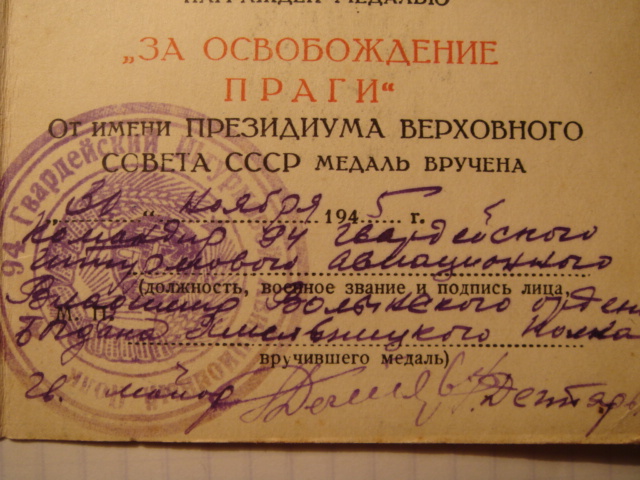 НАГРАЖДЕН МЕДАЛЬЮ
„ЗА ОСВОБОЖДЕНИЕ
ПРАГИ“
От имени ПРЕЗИДИУМА ВЕРХОВНОГО
СОВЕТА СССР МЕДАЛЬ ВРУЧЕНА
„30“ ноября 1945 г.
командир 94 гвардейского
штурмового авиационного
(должность, военное звание и подпись лица,
Владимир Волынского орден
М. П.
Богдана Хмельницкого полка
вручившего медаль)
гв. майор
94 Гвардейский Штурм